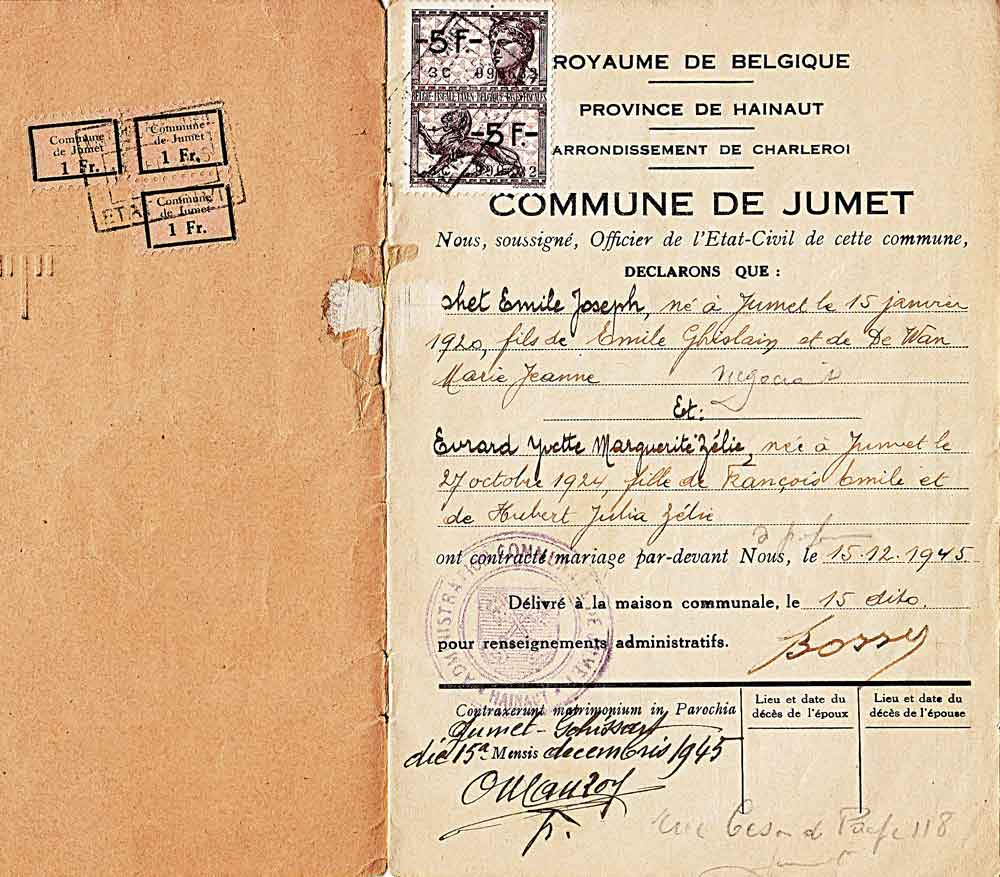 Commune
de Jumet
1 Fr.
Commune
de Jumet
1 Fr.
Commune
de Jumet
1 Fr.
-5 F.-
3C
-5 F.-
ROYAUME DE BELGIQUE
PROVINCE DE HAINAUT
ARRONDISSEMENT DE CHARLEROI
COMMUNE DE JUMET
Nous, soussigné, Officier de l'Etat-Civil de cette commune,
DECLARONS QUE :
Emile Joseph, né à Jumet le 15 janvier
1920, fils de Emile Ghislain et de De Wan
Marie Jeanne
Et:
Evrard Yvette Marguerite Zélie, née à Jumet le
27 octobre 1924, fille de François Emile et
de Hubert Julia Zélie
ont contracté mariage par-devant Nous, le 15.12.1945
Délivré à la maison communale, le 15 dito.
pour renseignements administratifs.
ADMINISTRATION COMMUNALE DE JUMET
HAINAUT
Contraxerunt matrimonium in Parochia
Jumet-Gohissart
die 15a Mensis decembris 1945
Lieu et date du
décès de l'époux
Lieu et date du
décès de l'épouse
118